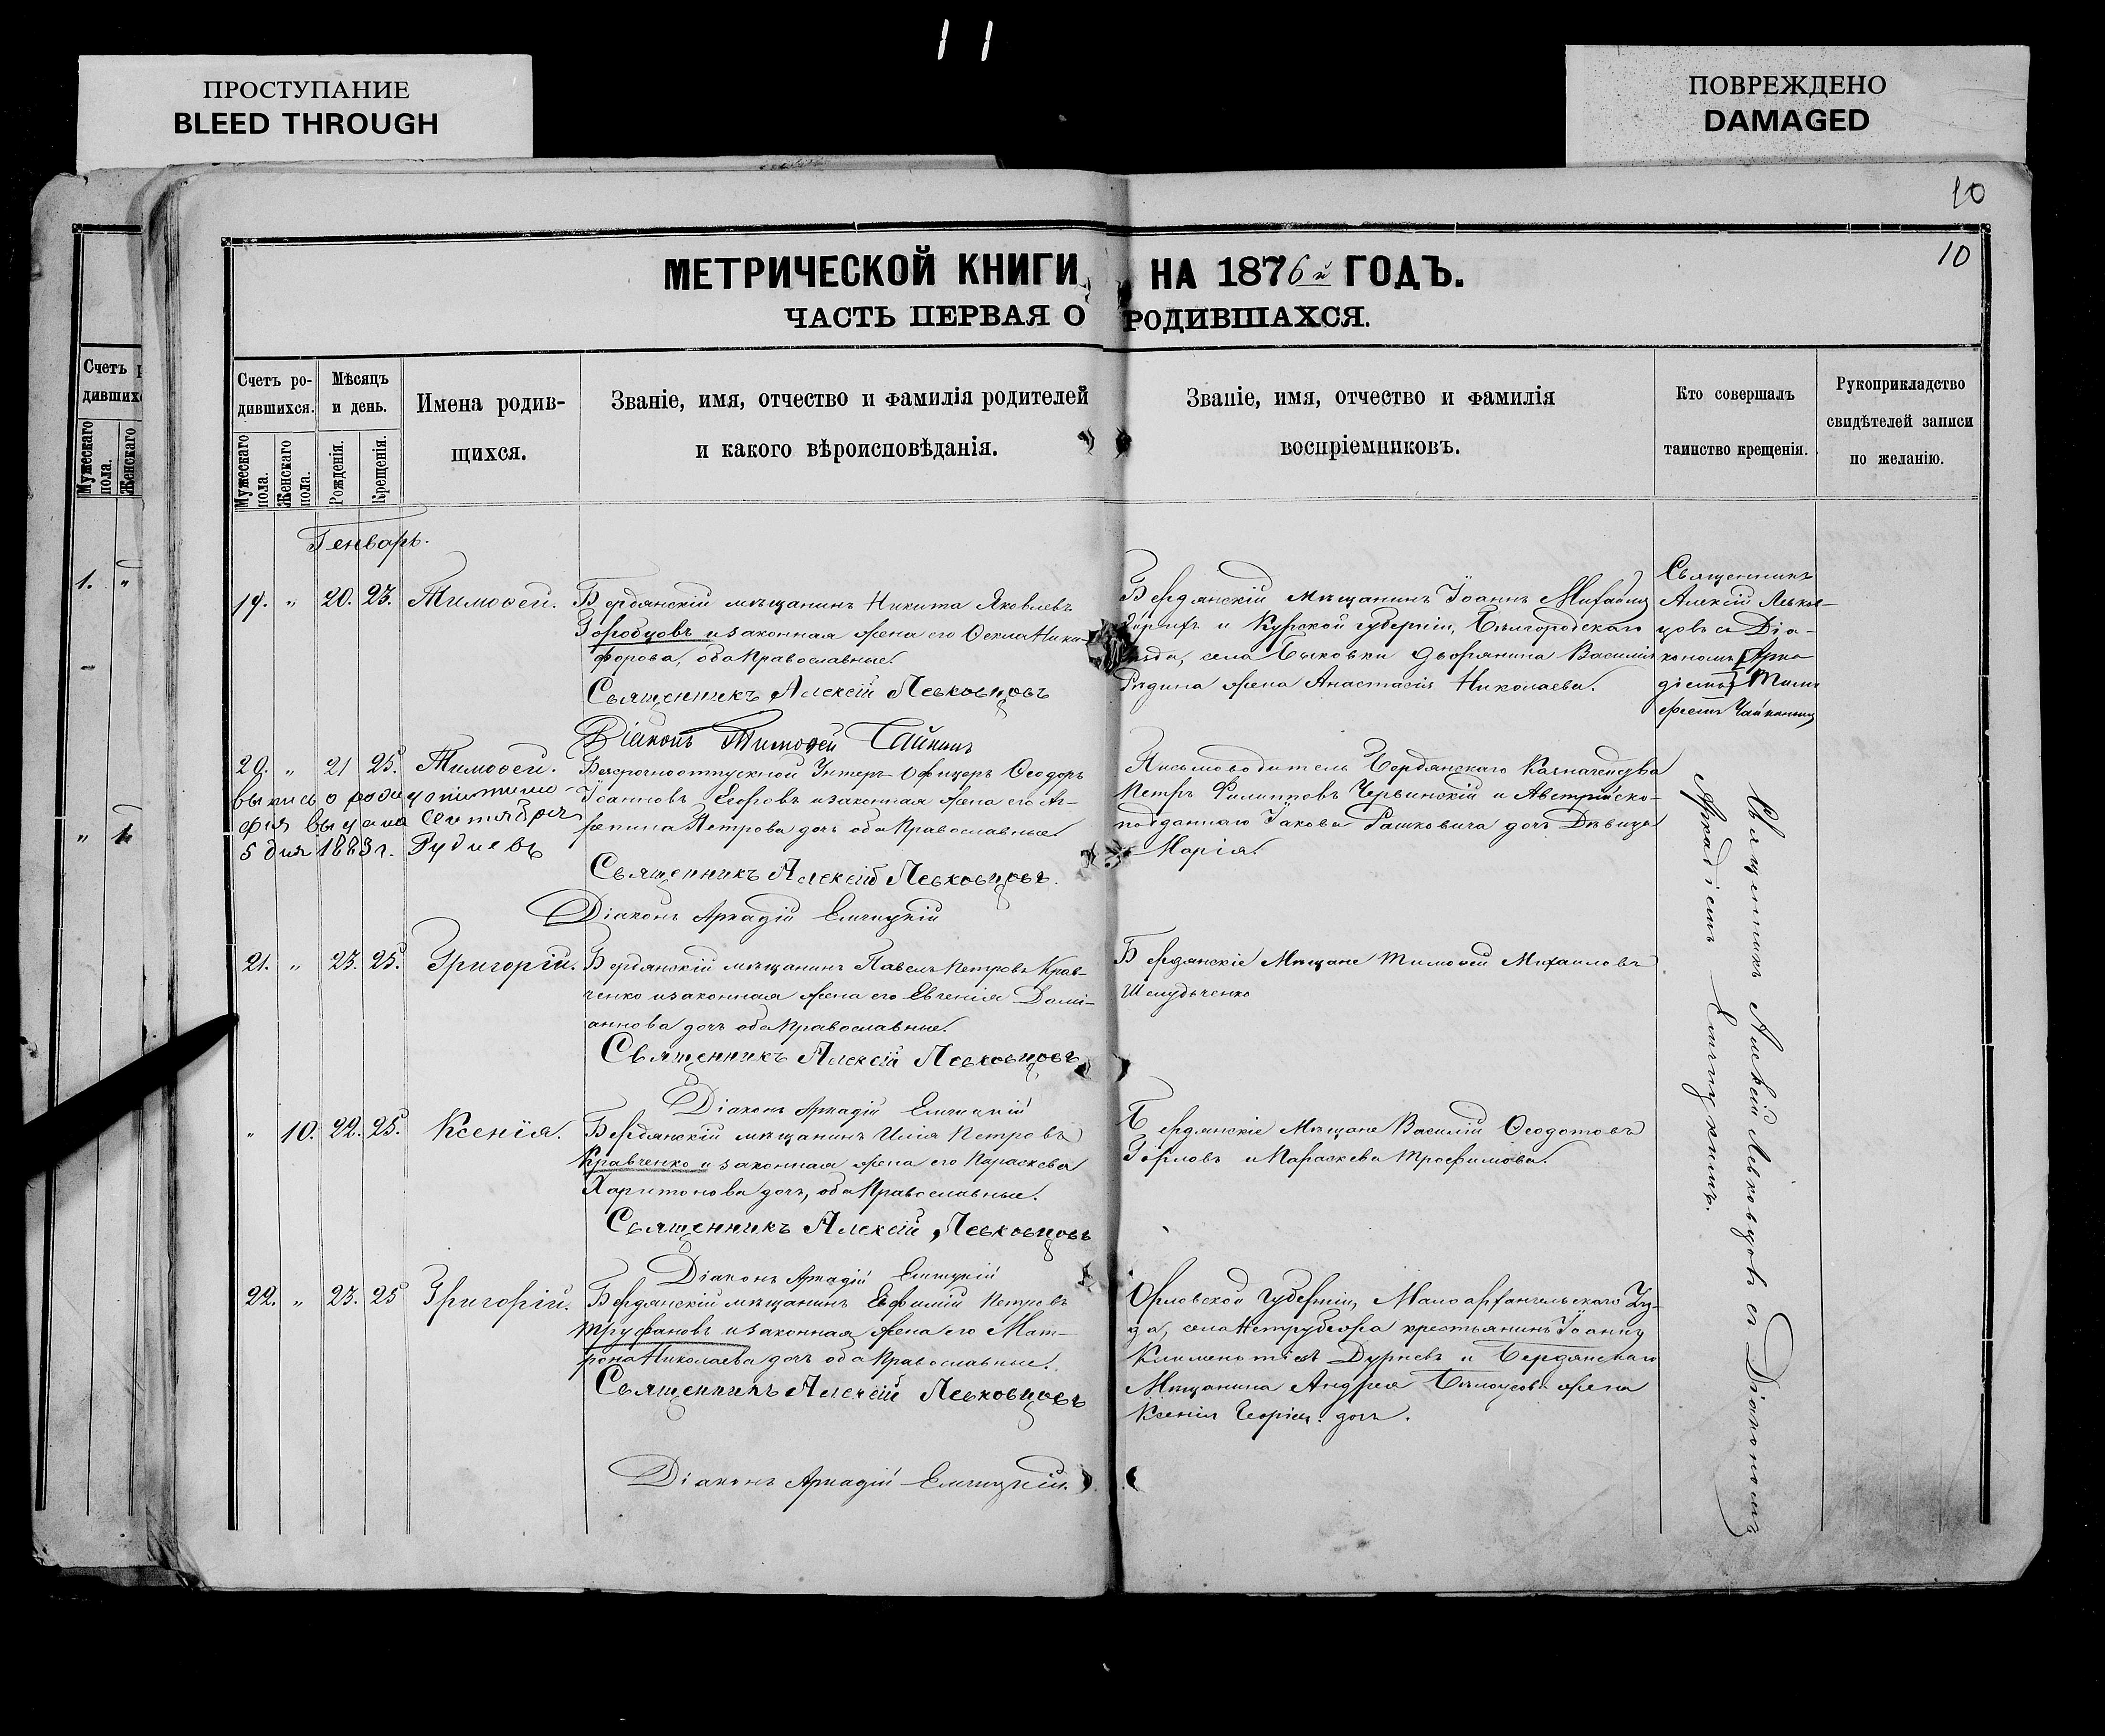 11
ПРОСТУПАНИЕ
BLEED THROUGH
ПОВРЕЖДЕНО
DAMAGED
10
10
МЕТРИЧЕСКОЙ КНИГИ НА 1876й ГОДЪ.
ЧАСТЬ ПЕРВАЯ О РОДИВШАХСЯ.
Счетъ
дившихс
Мужескаго пола.
Женскаго
1. "
" 1
Счетъ ро-
дившихся.
Мужескаго пола.
Женскаго пола.
Мѣсяцъ
и день.
Рожденія.
Крещенія.
Имена родив-
щихся.
Званіе, имя, отчество и фамилія родителей
и какого вѣроисповѣданія.
Званіе, имя, отчество и фамилія
воспріемниковъ.
Кто совершалъ
таинство крещенія.
Рукоприкладство
свидѣтелей записи
по желанію.
Генварь.
19. " 20. 23. Тимоѳей.
Бердянскій мѣщанинъ Никита Яковлевъ
Городцовъ и законная жена его Ѳекла Ники-
форова, оба Православные.
Священникъ Алексій Левковцовъ
Діаконъ Тимоѳей Чайкинъ
Бердянскій Мѣщанинъ Іоаннъ
и Курской губерніи, Бѣлгородскаго
села Быковки дворянина Василія
жена Анастасія Николаева.
Священникъ
Алексій Левков-
цовъ съ Діа-
кономъ
Тимо
ѳеемъ Чайкинымъ
20. " 21 25. Тимоѳей.
5 дня 1883 г.
Безсрочноотпускной Унтеръ-Офицеръ Ѳеодоръ
Іоанновъ Егоровъ и законная жена его А-
Петрова дочь оба Православные.
Священникъ Алексій Левковцовъ.
Діаконъ Аркадій Емчицкій
Письмоводитель Бердянскаго Казначейства
Петръ Филипповъ Червинскій и Австрійско-
подданнаго Іакова Рашковича дочь Дѣвица
Марія.
21. " 23. 25. Григорій.
Бердянскій мѣщанинъ Павелъ Петровъ Крав-
ченко и законная жена его Евгенія Даміа-
аннова дочь оба Православные.
Священникъ Алексій Левковцовъ
Діаконъ Аркадій Емчицкій
Бердянскіе Мѣщане Тимоѳей Михаиловъ
Шелудченко
" 10. 22. 25. Ксенія.
Бердянскій мѣщанинъ Илія Петровъ
Кравченко и законная жена его Параскева
Харитонова дочь, оба Православные.
Священникъ Алексій Левковцовъ
Діаконъ Аркадій Емчицкій
Бердянскіе Мѣщане Василій Ѳеодотовъ
Горловъ и Параскева Трофимова.
22. " 23. 25 Григорій.
Бердянскій мѣщанинъ Евфимій Петровъ
Труфановъ и законная жена его Мат-
рона Николаева дочь оба Православные.
Священникъ Алексій Левковцовъ
Діаконъ Аркадій Емчицкій
Орловской Губерніи, Малоархангельскаго Уѣз-
да, села крестьянинъ Іоаннъ
Дурневъ и Бердянскаго
Мѣщанина Андрея Бѣлоусова жена
Ксенія дочь.
Священникъ Алексій Левковцовъ съ Діакономъ
Аркадіемъ Емчицкимъ.